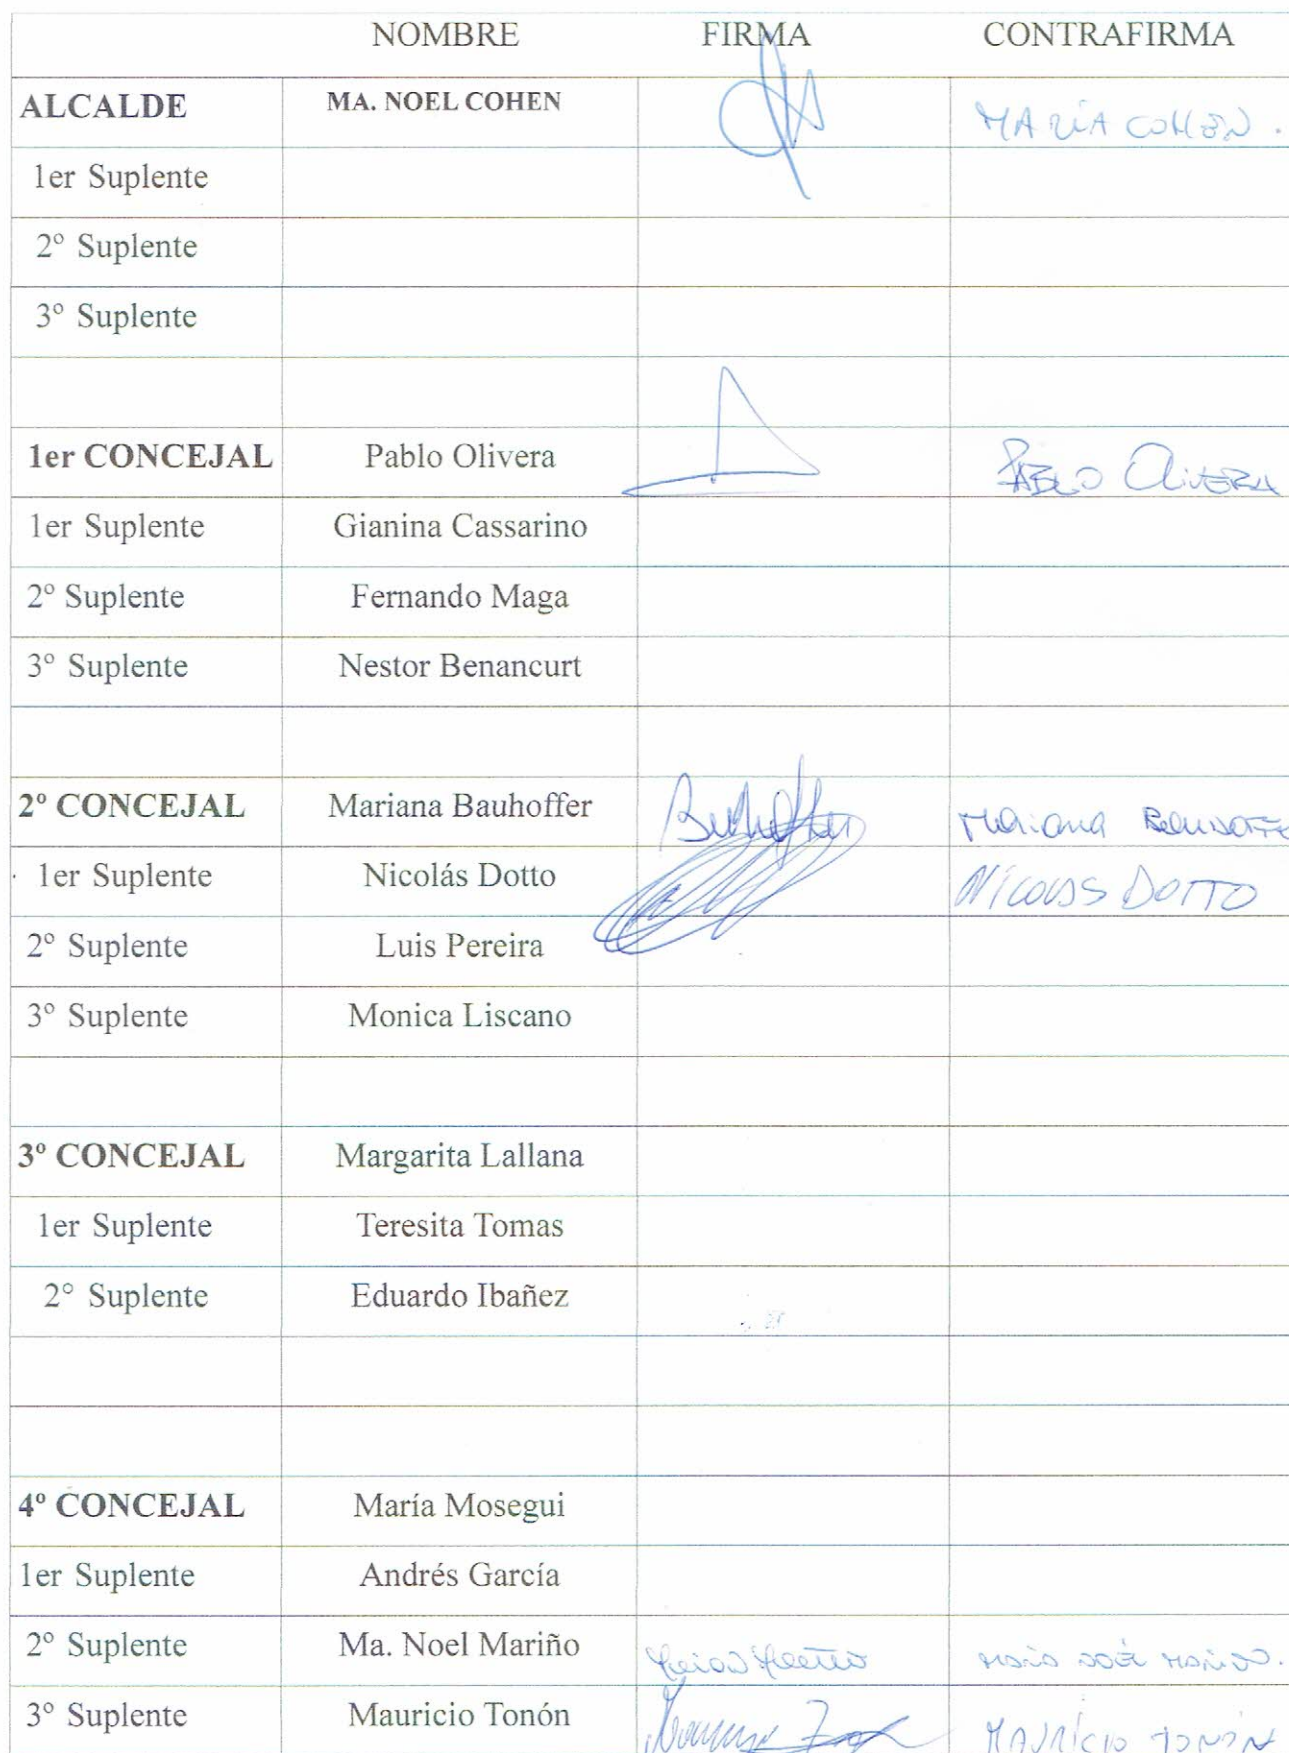 NOMBRE FIRMA CONTRAFIRMA
ALCALDE MA. NOEL COHEN MARÍA COHEN.
1er Suplente
2º Suplente
3º Suplente
1er CONCEJAL Pablo Olivera PABLO OLIVERA
1er Suplente Gianina Cassarino
2º Suplente Fernando Maga
3º Suplente Nestor Benancurt
2º CONCEJAL Mariana Bauhoffer Bauhoffer Mariana
1er Suplente Nicolás Dotto NICOLAS DOTTO
2º Suplente Luis Pereira
3º Suplente Monica Liscano
3º CONCEJAL Margarita Lallana
1er Suplente Teresita Tomas
2° Suplente Eduardo Ibañez
4º CONCEJAL María Mosegui
1er Suplente Andrés García
2º Suplente Ma. Noel Mariño
3º Suplente Mauricio Tonón MAURICIO TONÓN